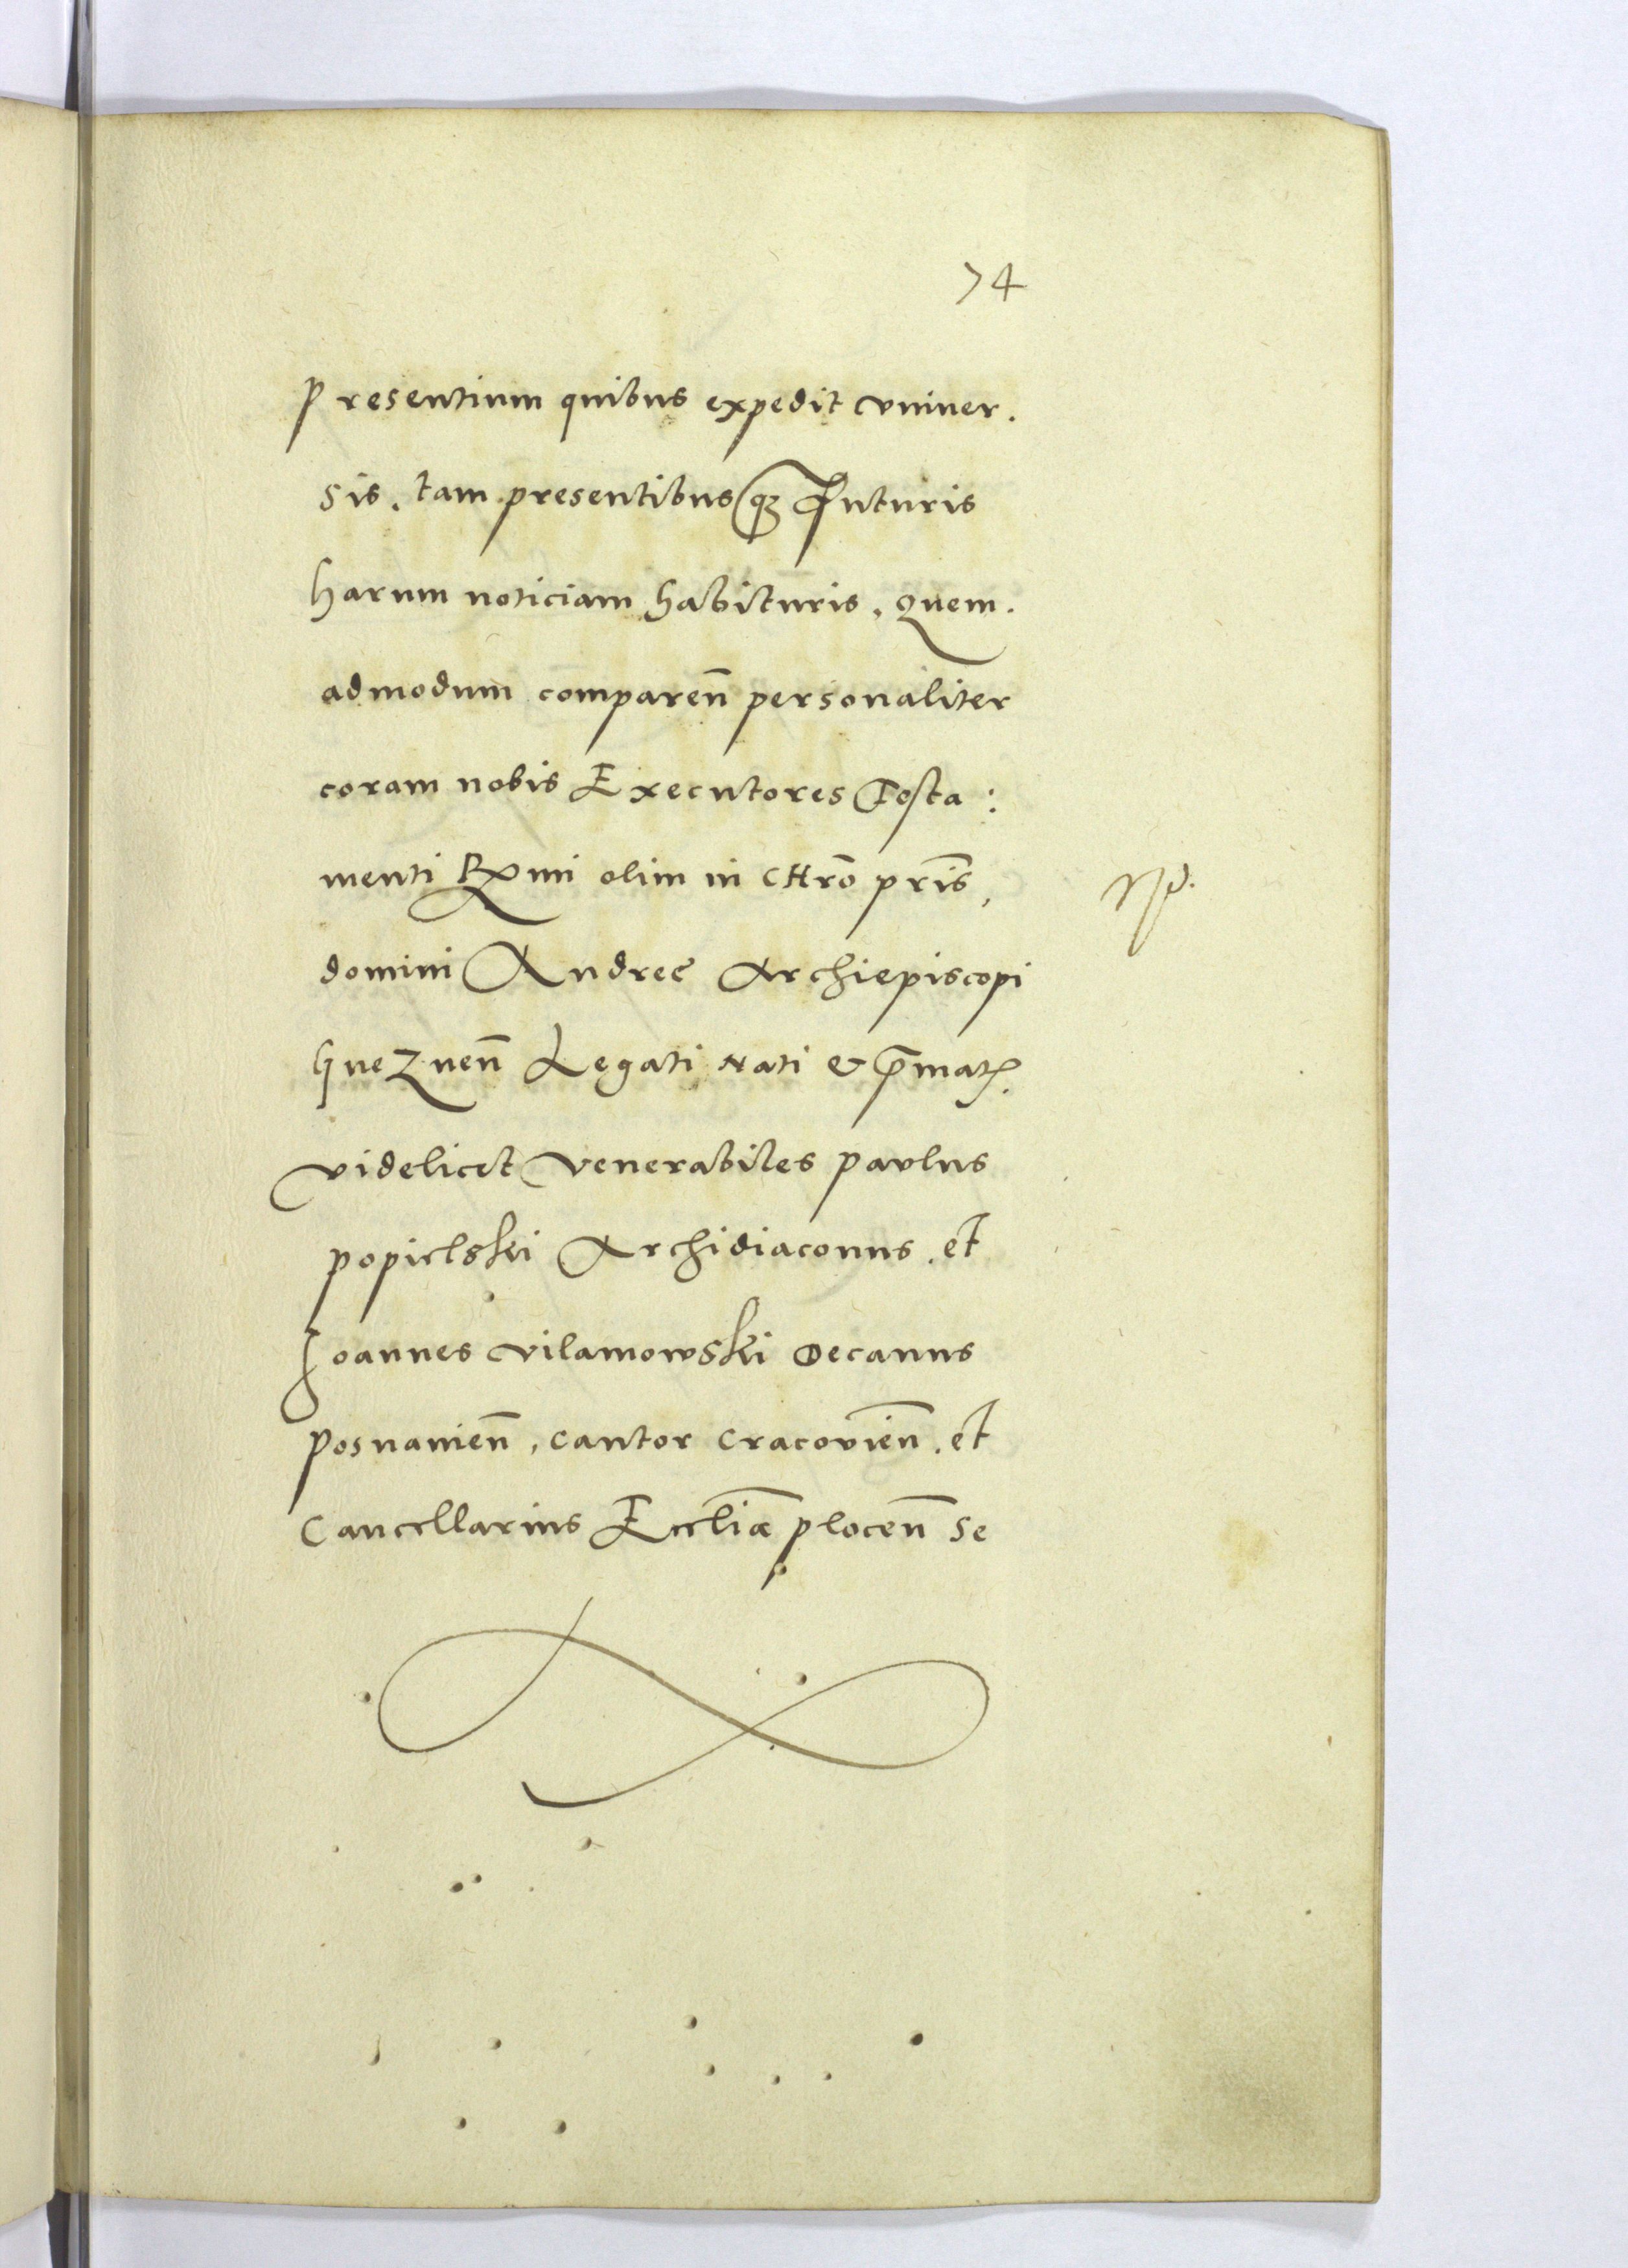 74
Presentium quibus expedit univer.
sis. tam presentibus qз futuris
harum noticiam habituris. Quem.
admodum comparen̄ personaliter
coram nobis Executores Testa:
menti Rx̄mi olim in Chrō pr̄is,
domini Andree Archiepiscopi
Gneznen̄ Legati Nati &
videlicet venerabiles Paulus
Popielski Archidiaconus. et
Joannes Vilamowski Decanus
Posnanien̄, Cantor Cracovien̄. et
Cancellarius Eccliǣ Plocen̄ se